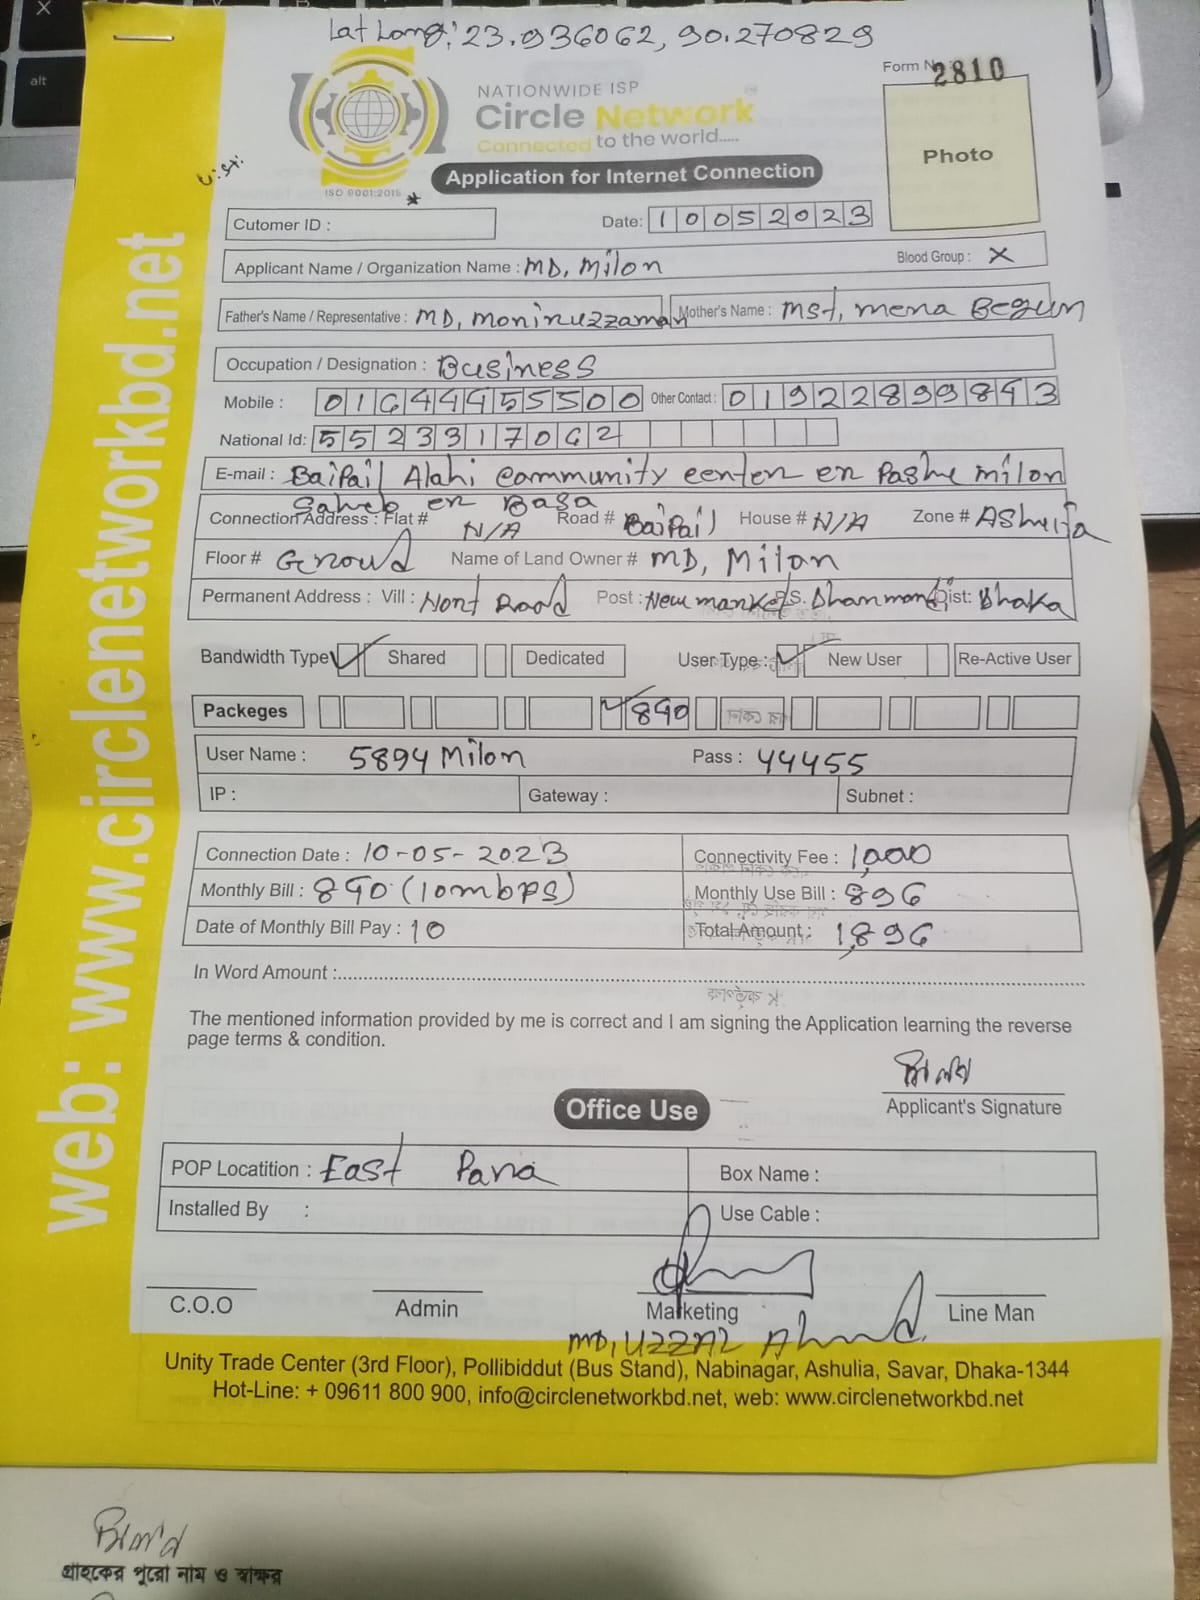 Lat Long: 23.936062, 90.270829
Form N 2810
NATIONWIDE ISP
Circle Network
Connected to the world.....
ISO 9001:2015
Application for Internet Connection
Photo
Cutomer ID :
Date: 10052023
Applicant Name / Organization Name : MD, Milon
Blood Group : X
Father's Name / Representative : MD, Moniruzzaman Mother's Name : Mst, mena Begum
Occupation / Designation : Business
Mobile : 01644455500 Other Contact : 01922899843
National Id: 5523317062
E-mail : BaiPail Alahi Community center er Pashe milon
Saheb er Basa
Connection Address : Flat # N/A Road # BaiPail House # N/A Zone # AShulia
Floor # Ground Name of Land Owner # MD, Milon
Permanent Address : Vill : Nort Road Post : New market P.S. Dhanmondi Dist: Dhaka
Bandwidth Type Shared Dedicated User Type : New User Re-Active User
Packeges 890
User Name : 5894 Milon Pass : 44455
IP : Gateway : Subnet :
Connection Date : 10-05-2023 Connectivity Fee : 1,000
Monthly Bill : 890 (10mbps) Monthly Use Bill : 896
Date of Monthly Bill Pay : 10 Total Amount : 1,896
In Word Amount :
The mentioned information provided by me is correct and I am signing the Application learning the reverse
page terms & condition.
মিলন
Applicant's Signature
Office Use
POP Locatition : East Para Box Name :
Installed By : Use Cable :
C.O.O Admin Marketing Line Man
MD, UZZAL Ahmed.
Unity Trade Center (3rd Floor), Pollibiddut (Bus Stand), Nabinagar, Ashulia, Savar, Dhaka-1344
Hot-Line: + 09611 800 900, info@circlenetworkbd.net, web: www.circlenetworkbd.net
web: www.circlenetworkbd.net
মিলন
গ্রাহকের পুরো নাম ও স্বাক্ষর